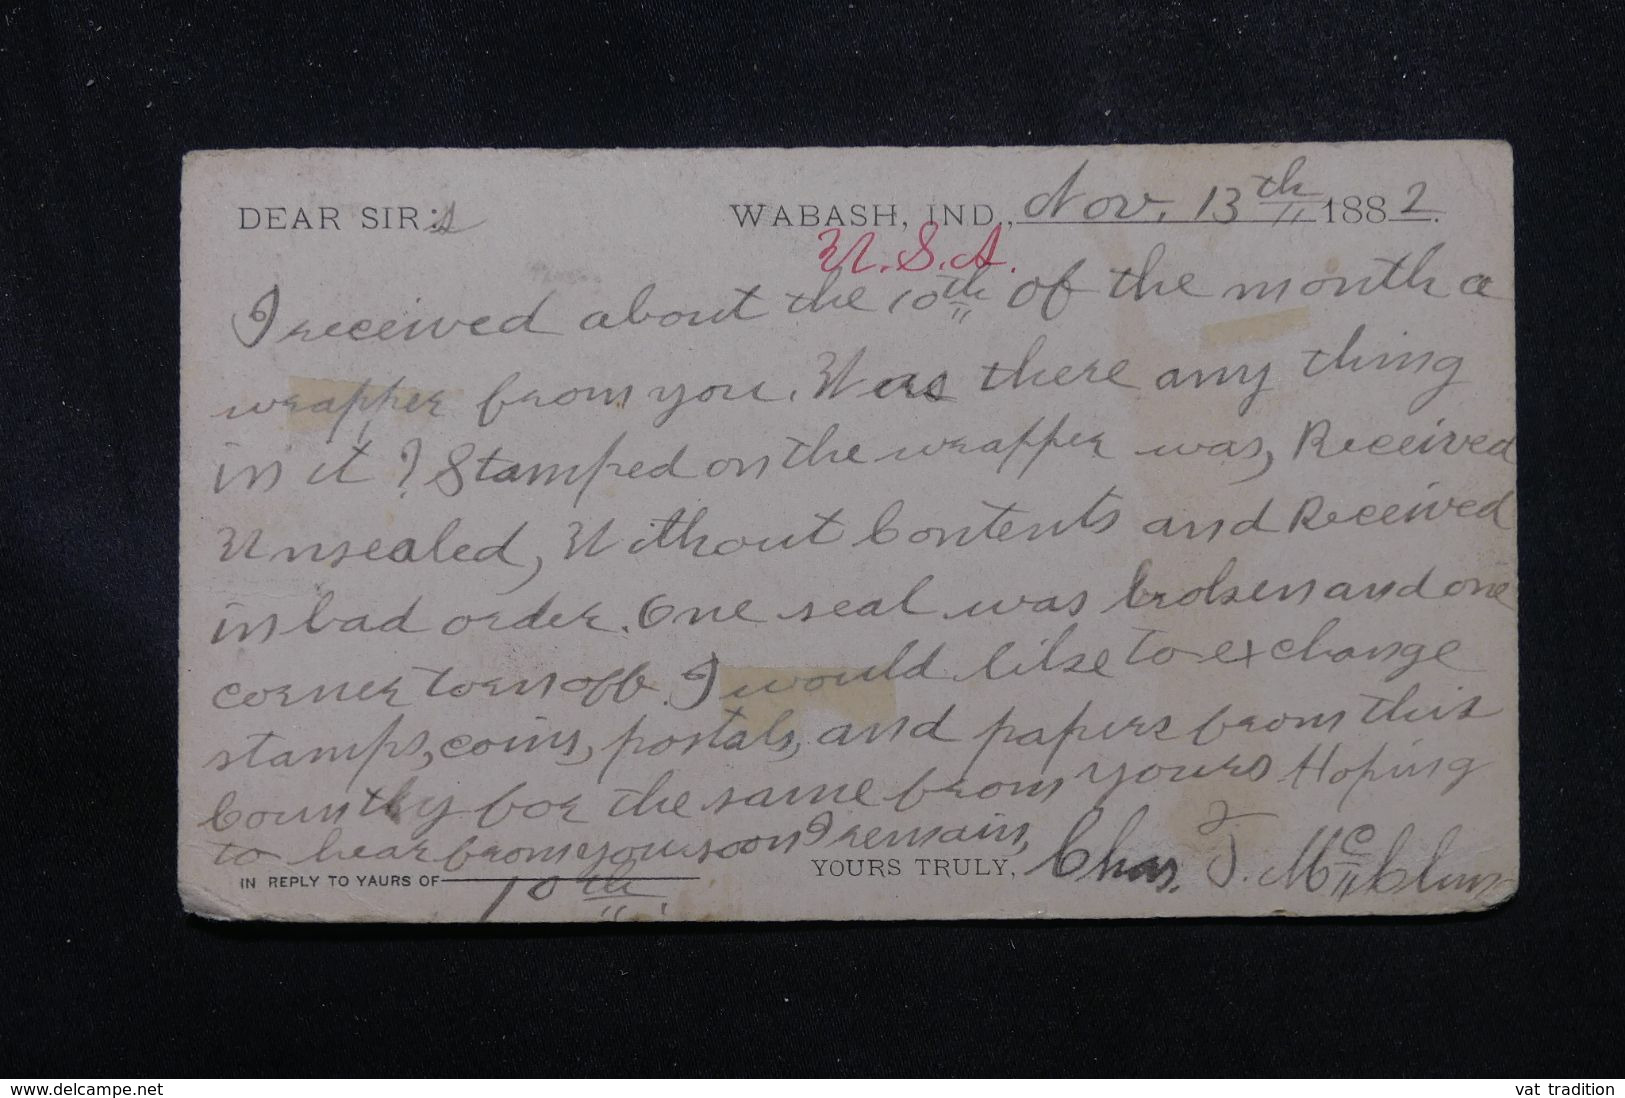 DEAR SIR:s WABASH, IND., Nov. 13th 1882.
U.S.A.
I received about the 10th of the month a
wrapper from you. Was there any thing
in it? Stamped on the wrapper was, Received
Unsealed, Without Contents and Received
in bad order. One seal was broken and one
corner torn off. I would like to exchange
stamps, coins, postals, and papers from this
Country for the same from yours Hoping
to hear from you soon I remain,
YOURS TRULY, Chas. T. Mc
IN REPLY TO YAURS OF 10th.
www.delcampe.net
vat_tradition